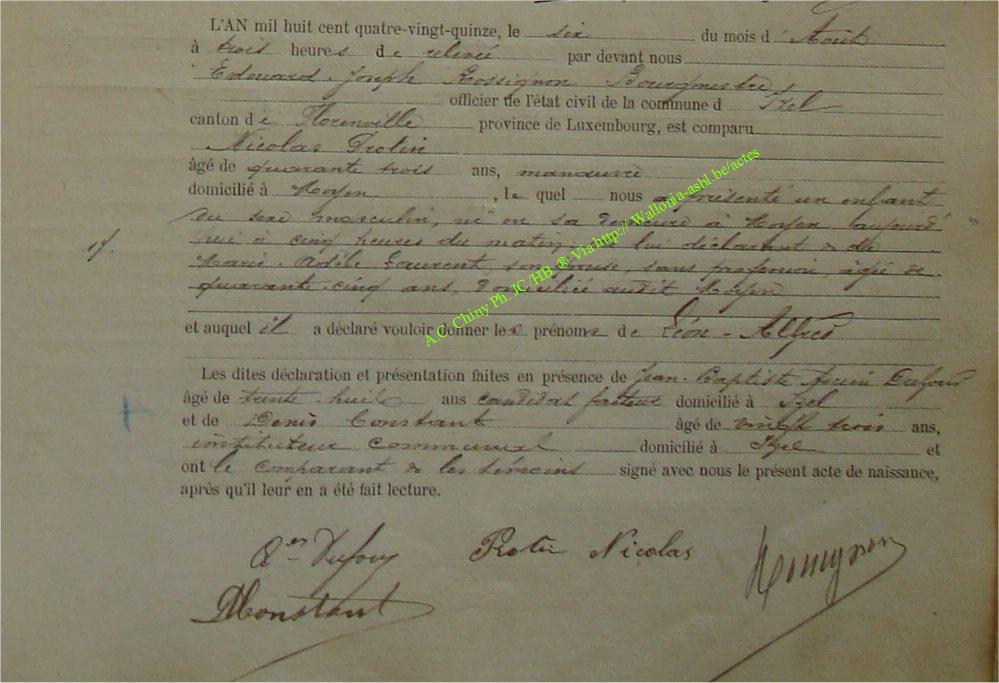 L'AN mil huit cent quatre-vingt-quinze, le six du mois d'Août
à trois heures de relevée par devant nous
Edouard Joseph Rossignon Bourgmestre
officier de l'état civil de la commune d Izel
canton de Florenville province de Luxembourg, est comparu
Nicolas Protin
âgé de quarante trois ans, manœuvre
domicilié à Moyen, lequel nous a présenté un enfant
du sexe masculin, né en sa demeure à Moyen aujourd'
hui à cinq heures du matin, de lui déclarant & de
Marie-Adèle Laurent, son épouse, sans profession, âgée de
quarante-cinq ans, domiciliée audit Moyen
et auquel il a déclaré vouloir donner les prénoms de Léon-Alfred
Les dites déclaration et présentation faites en présence de Jean-Baptiste Dufour
âgé de trente-huit ans candidat facteur domicilié à Izel
et de Denis Constant âgé de vingt trois ans,
instituteur communal domicilié à Izel et
ont le comparant & les témoins signé avec nous le présent acte de naissance,
après qu'il leur en a été fait lecture.
Dufour Protin Nicolas Rossignon
DConstant
A.C. Chiny Ph. JC/HB ® Via http:// Wallonia-asbl.be/actes